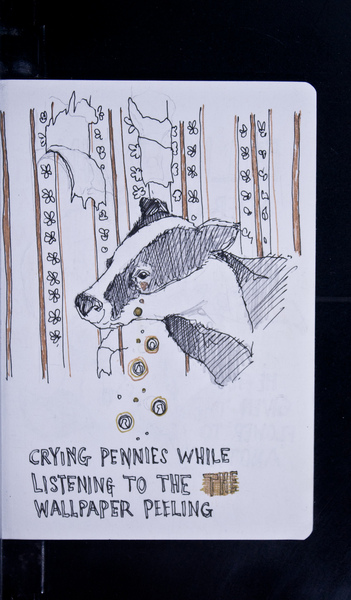 CRYING PENNIES WHILE
LISTENING TO THE THE
WALLPAPER PEELING